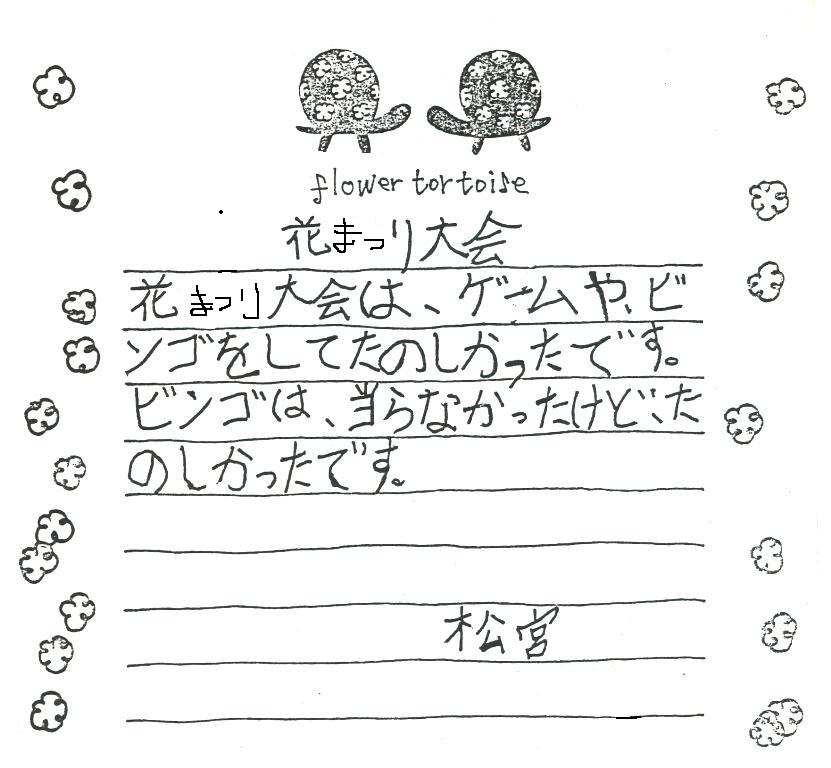 flower tortoise
花まつり大会
花まつり大会は、ゲームや、ビ
ンゴをしてたのしかったです。
ビンゴは、当らなかったけど、た
のしかったです。
松宮